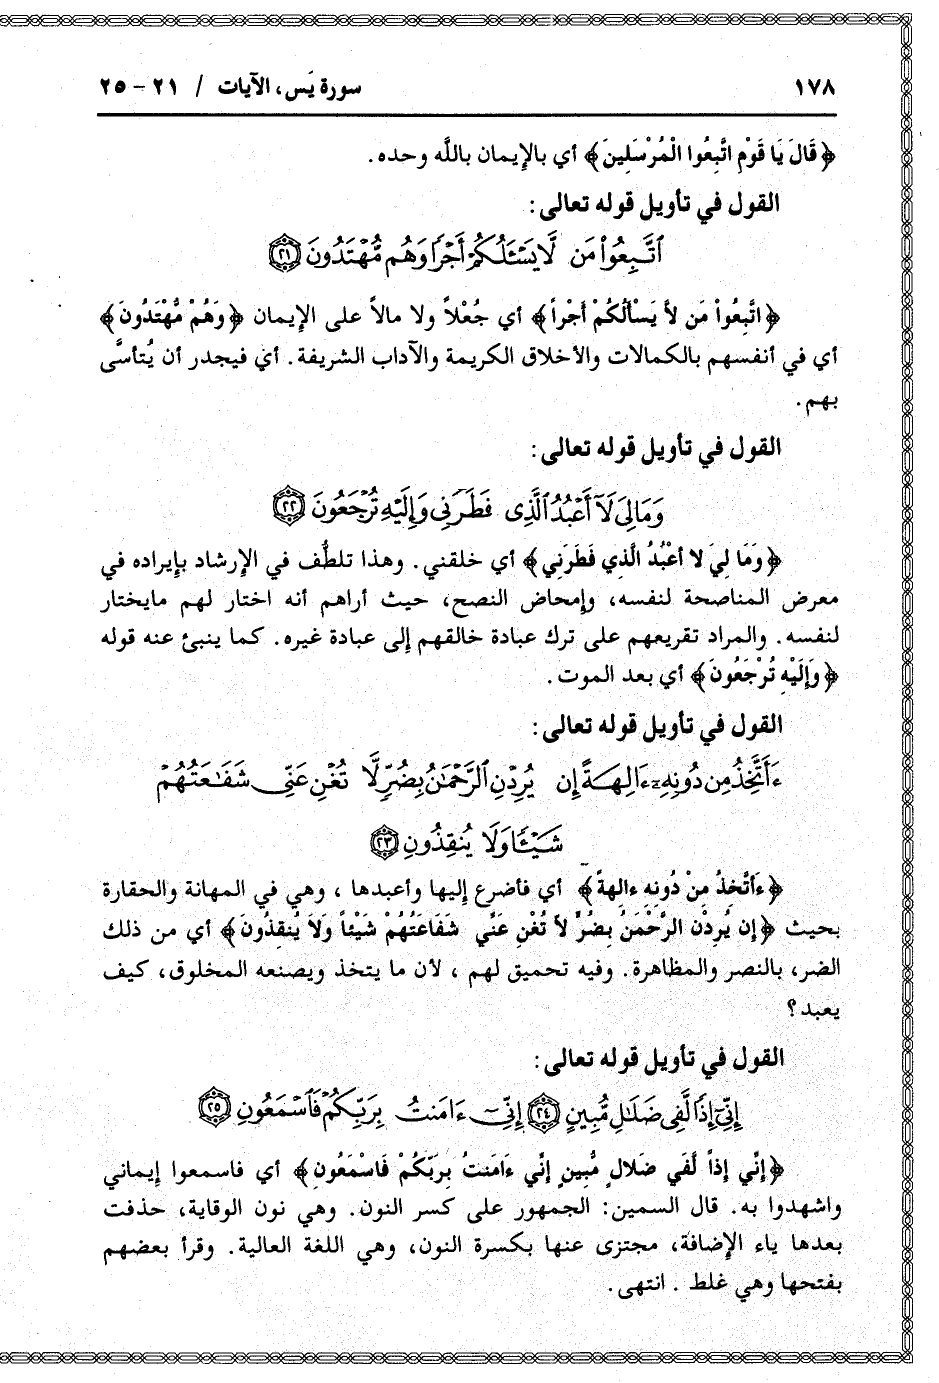 ١٧٨ سورة يَس، الآيات / ٢١ - ٢٥
﴿قَالَ يَا قَوْمِ اتَّبِعُوا الْمُرْسَلِينَ﴾ أي بالإيمان باللَّه وحده.
القول في تأويل قوله تعالى:
ٱتَّبِعُوا۟ مَن لَّا يَسْـَٔلُكُمْ أَجْرًا وَهُم مُّهْتَدُونَ ٢١
﴿اتَّبِعُواْ مَن لاَ يَسْأَلُكُمْ أَجْراً﴾ أي جُعْلاً ولا مالاً على الإيمان ﴿وَهُمْ مُّهْتَدُونَ﴾
أي في أنفسهم بالكمالات والأخلاق الكريمة والآداب الشريفة. أي فيجدر أن يُتأسَّى
بهم.
القول في تأويل قوله تعالى:
وَمَا لِىَ لَآ أَعْبُدُ ٱلَّذِى فَطَرَنِى وَإِلَيْهِ تُرْجَعُونَ ٢٢
﴿وَمَا لِيَ لا أَعْبُدُ الَّذِي فَطَرَنِي﴾ أي خلقني. وهذا تلطُّف في الإرشاد بإيراده في
معرض المناصحة لنفسه، وإمحاض النصح، حيث أراهم أنه اختار لهم مايختار
لنفسه. والمراد تقريعهم على ترك عبادة خالقهم إلى عبادة غيره. كما ينبئ عنه قوله
﴿وَإِلَيْهِ تُرْجَعُونَ﴾ أي بعد الموت.
القول في تأويل قوله تعالى:
ءَأَتَّخِذُ مِن دُونِهِۦٓ ءَالِهَةً إِن يُرِدْنِ ٱلرَّحْمَٰنُ بِضُرٍّ لَّا تُغْنِ عَنِّى شَفَٰعَتُهُمْ
شَيْـًٔا وَلَا يُنقِذُونِ ٢٣
﴿ءَاَتَّخِذُ مِنْ دُونِهِ ءالِهةً﴾ أي فأضرع إليها وأعبدها ، وهي في المهانة والحقارة
بحيث ﴿إِن يُرِدْنِ الرَّحْمَنُ بِضُرٍّ لاَ تُغْنِ عَنَّي شَفَاعَتُهُمْ شَيْئاً وَلاَ يُنقِذُونَ﴾ أي من ذلك
الضر، بالنصر والمظاهرة. وفيه تحميق لهم ، لأن ما يتخذ ويصنعه المخلوق، كيف
يعبد؟
القول في تأويل قوله تعالى:
إِنِّىٓ إِذًا لَّفِى ضَلَٰلٍ مُّبِينٍ ٢٤ إِنِّىٓ ءَامَنتُ بِرَبِّكُمْ فَٱسْمَعُونِ ٢٥
﴿إِنِّي إِذاً لَفَي ضَلالٍ مُّبينٍ إِنِّي ءَامَنتُ بِرَبِّكُمْ فَاسْمَعُونِ﴾ أي فاسمعوا إيماني
واشهدوا به. قال السمين: الجمهور على كسر النون. وهي نون الوقاية، حذفت
بعدها ياء الإضافة، مجتزى عنها بكسرة النون، وهي اللغة العالية. وقرأ بعضهم
بفتحها وهي غلط . انتهى.